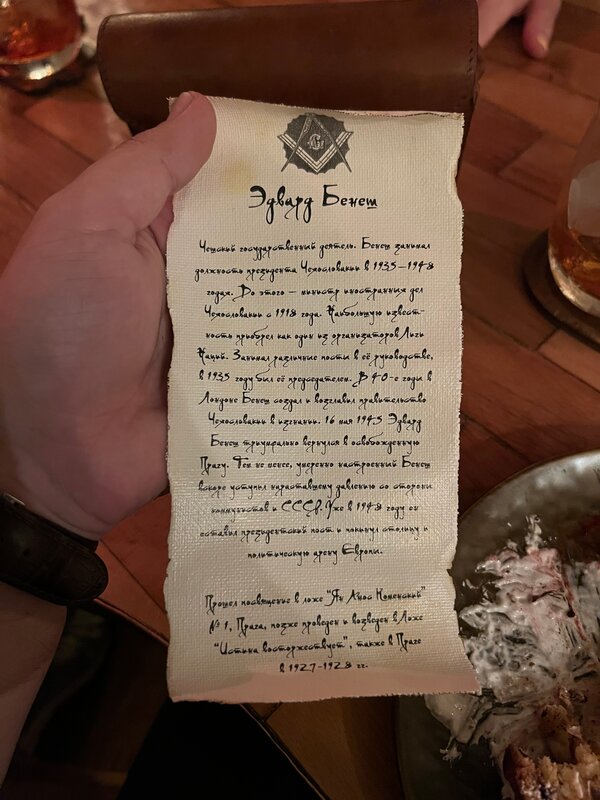 G
Эдвард Бенеш
Чешский государственный деятель. Бенеш занимал
должность президента Чехословакии в 1935–1948
годах. До этого — министр иностранных дел
Чехословакии с 1918 года. Наибольшую извест-
ность приобрел как один из организаторов Лиги
Наций. Занимал различные посты в её руководстве,
в 1935 году был её председателем. В 40-е годы в
Лондоне Бенеш создал и возглавил правительство
Чехословакии в изгнании. 16 мая 1945 Эдвард
Бенеш триумфально вернулся в освобожденную
Прагу. Тем не менее, умеренно настроенный Бенеш
вскоре уступил нараставшему давлению со стороны
коммунистов и СССР. Уже в 1948 году он
оставил президентский пост и покинул столицу и
политическую арену Европы.
Прошел посвящение в ложе "Ян Амос Коменский"
№ 1, Прага, позже проведен и возведен в Ложе
"Истина восторжествует", также в Праге
в 1927-1928 гг.